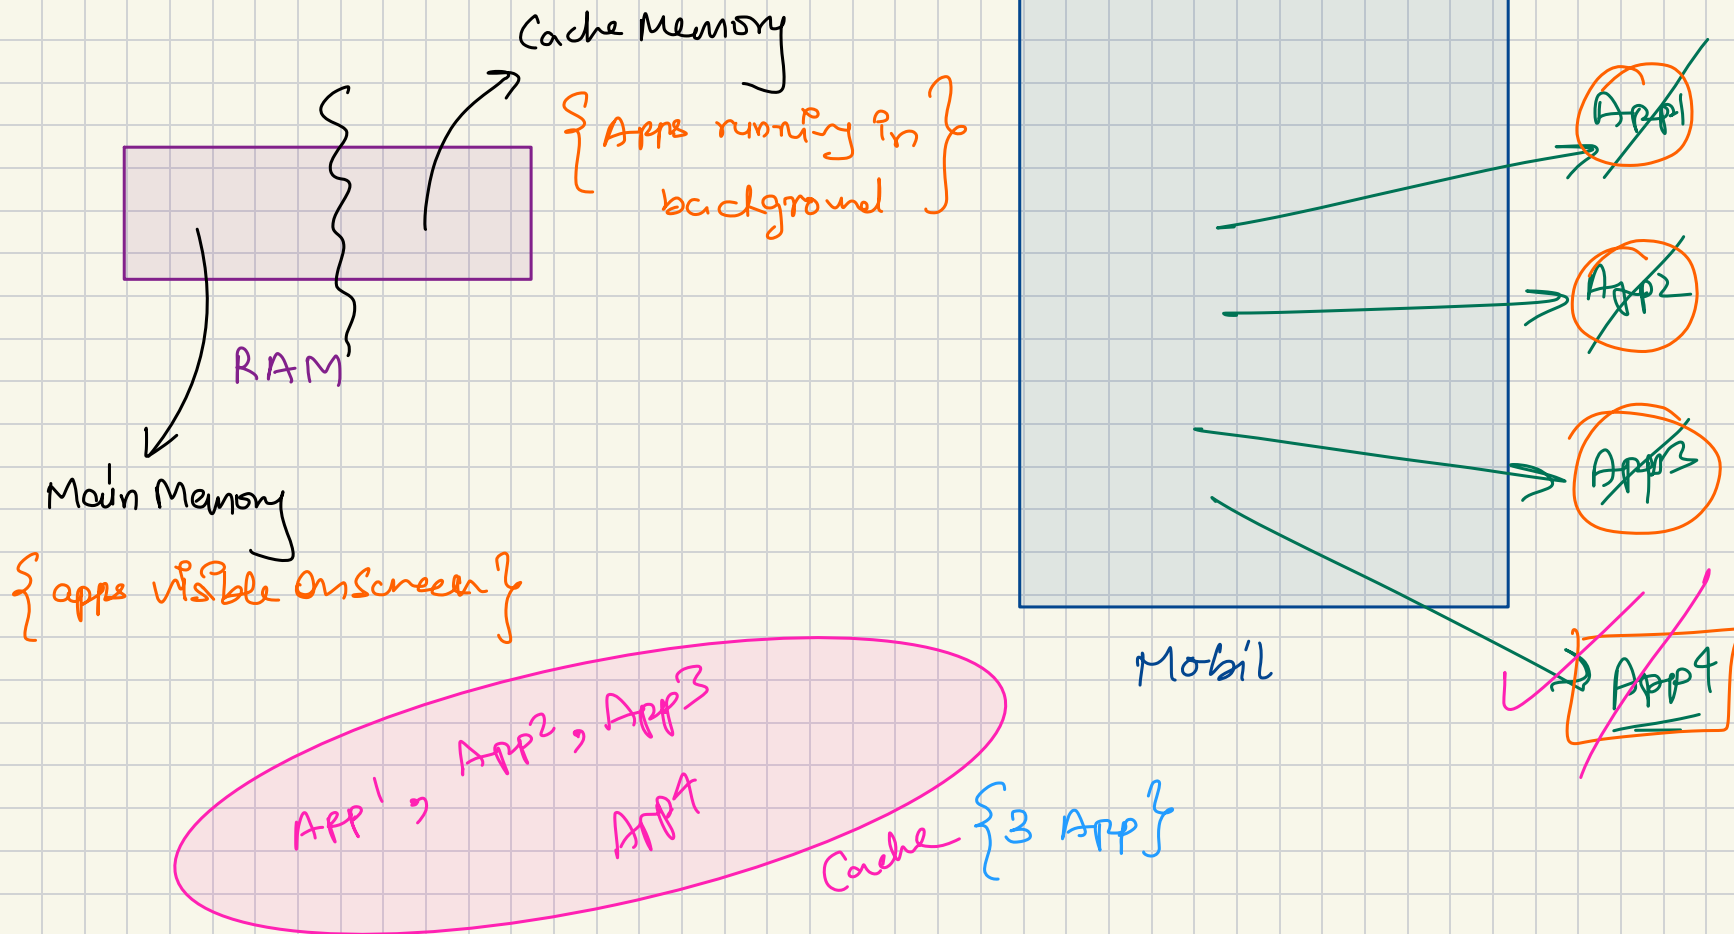 Cache Memory
{Apps running in
background}
RAM
Main Memory
{apps visible onscreen}
App1
App2
App3
App4
Mobil
App1, App2, App3
App4
Cache {3 App}